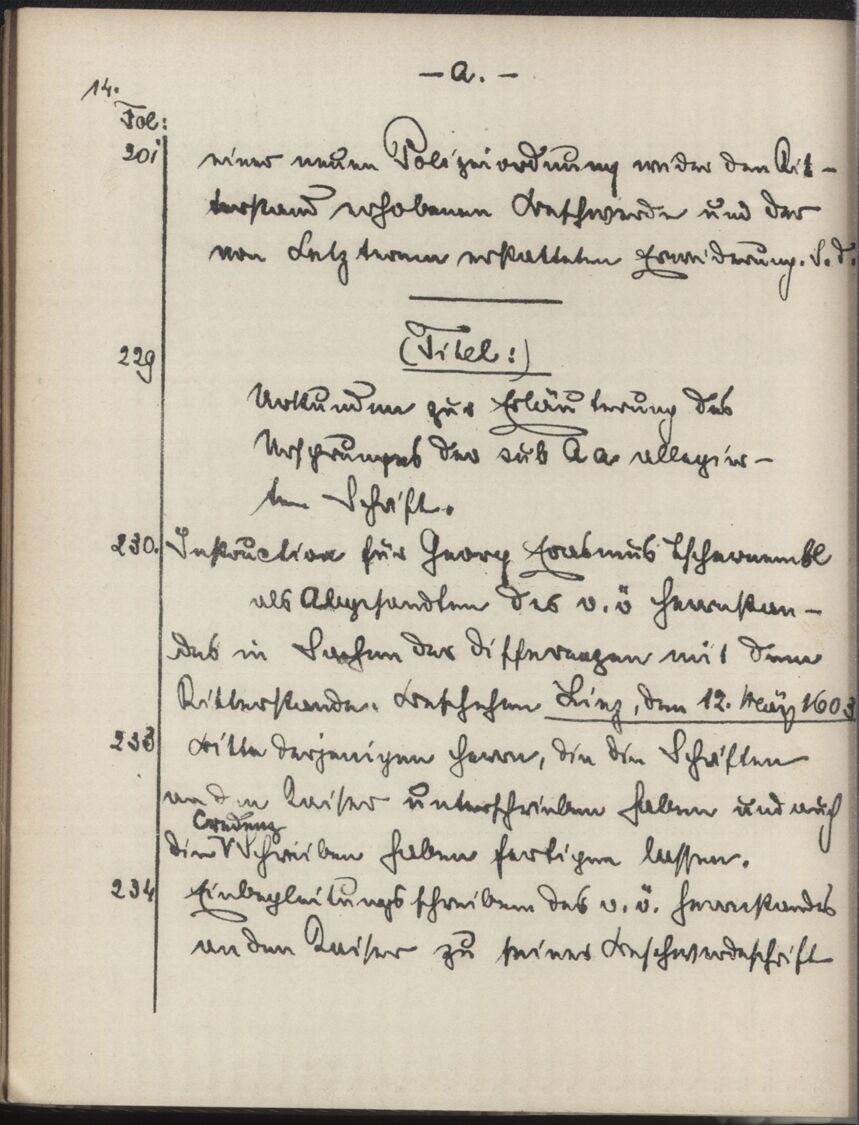 — a. —
14.
Fol:
201 einer neuen Polizeiordnung wider den Rit-
terstand erhobenen Beschwerde und der
von Letzterem erstatteten Erwiderung. S. d.
229 (Titel:)
Urkunden zur Erläuterung des
Ursprunges der sub A a allegier-
ten Schrift.
230. Instruction für Georg Erasmus Tschernembl
als Abgesandten des o. ö Herrnstan-
des in Sachen der Differenzen mit dem
Ritterstande. Beschehen Linz, den 12. May 1603
233 Bitte derjenigen Herrn, die die Schriften
an den Kaiser unterschrieben haben und auch
Credenz
die Schreiben haben fertigen lassen.
234 Einbegleitungsschreiben des o. ö. Herrnstandes
an den Kaiser zu seiner Beschwerdeschrift